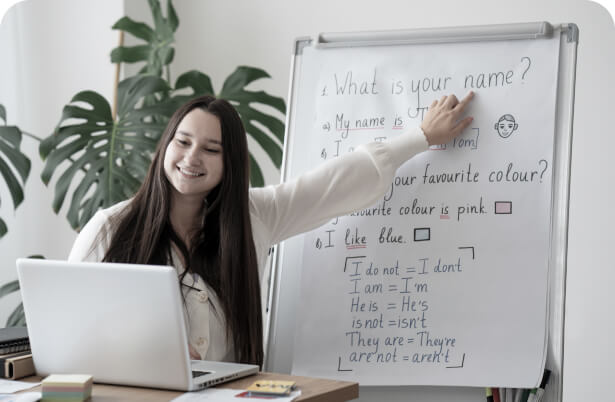 1. What is your name?
a) My name is
Tom]
your favourite colour?
favourite colour is pink.
b) I like blue.
I do not = I don't
I am = I'm
He is = He's
is not = isn't
They are = They're
are not = aren't